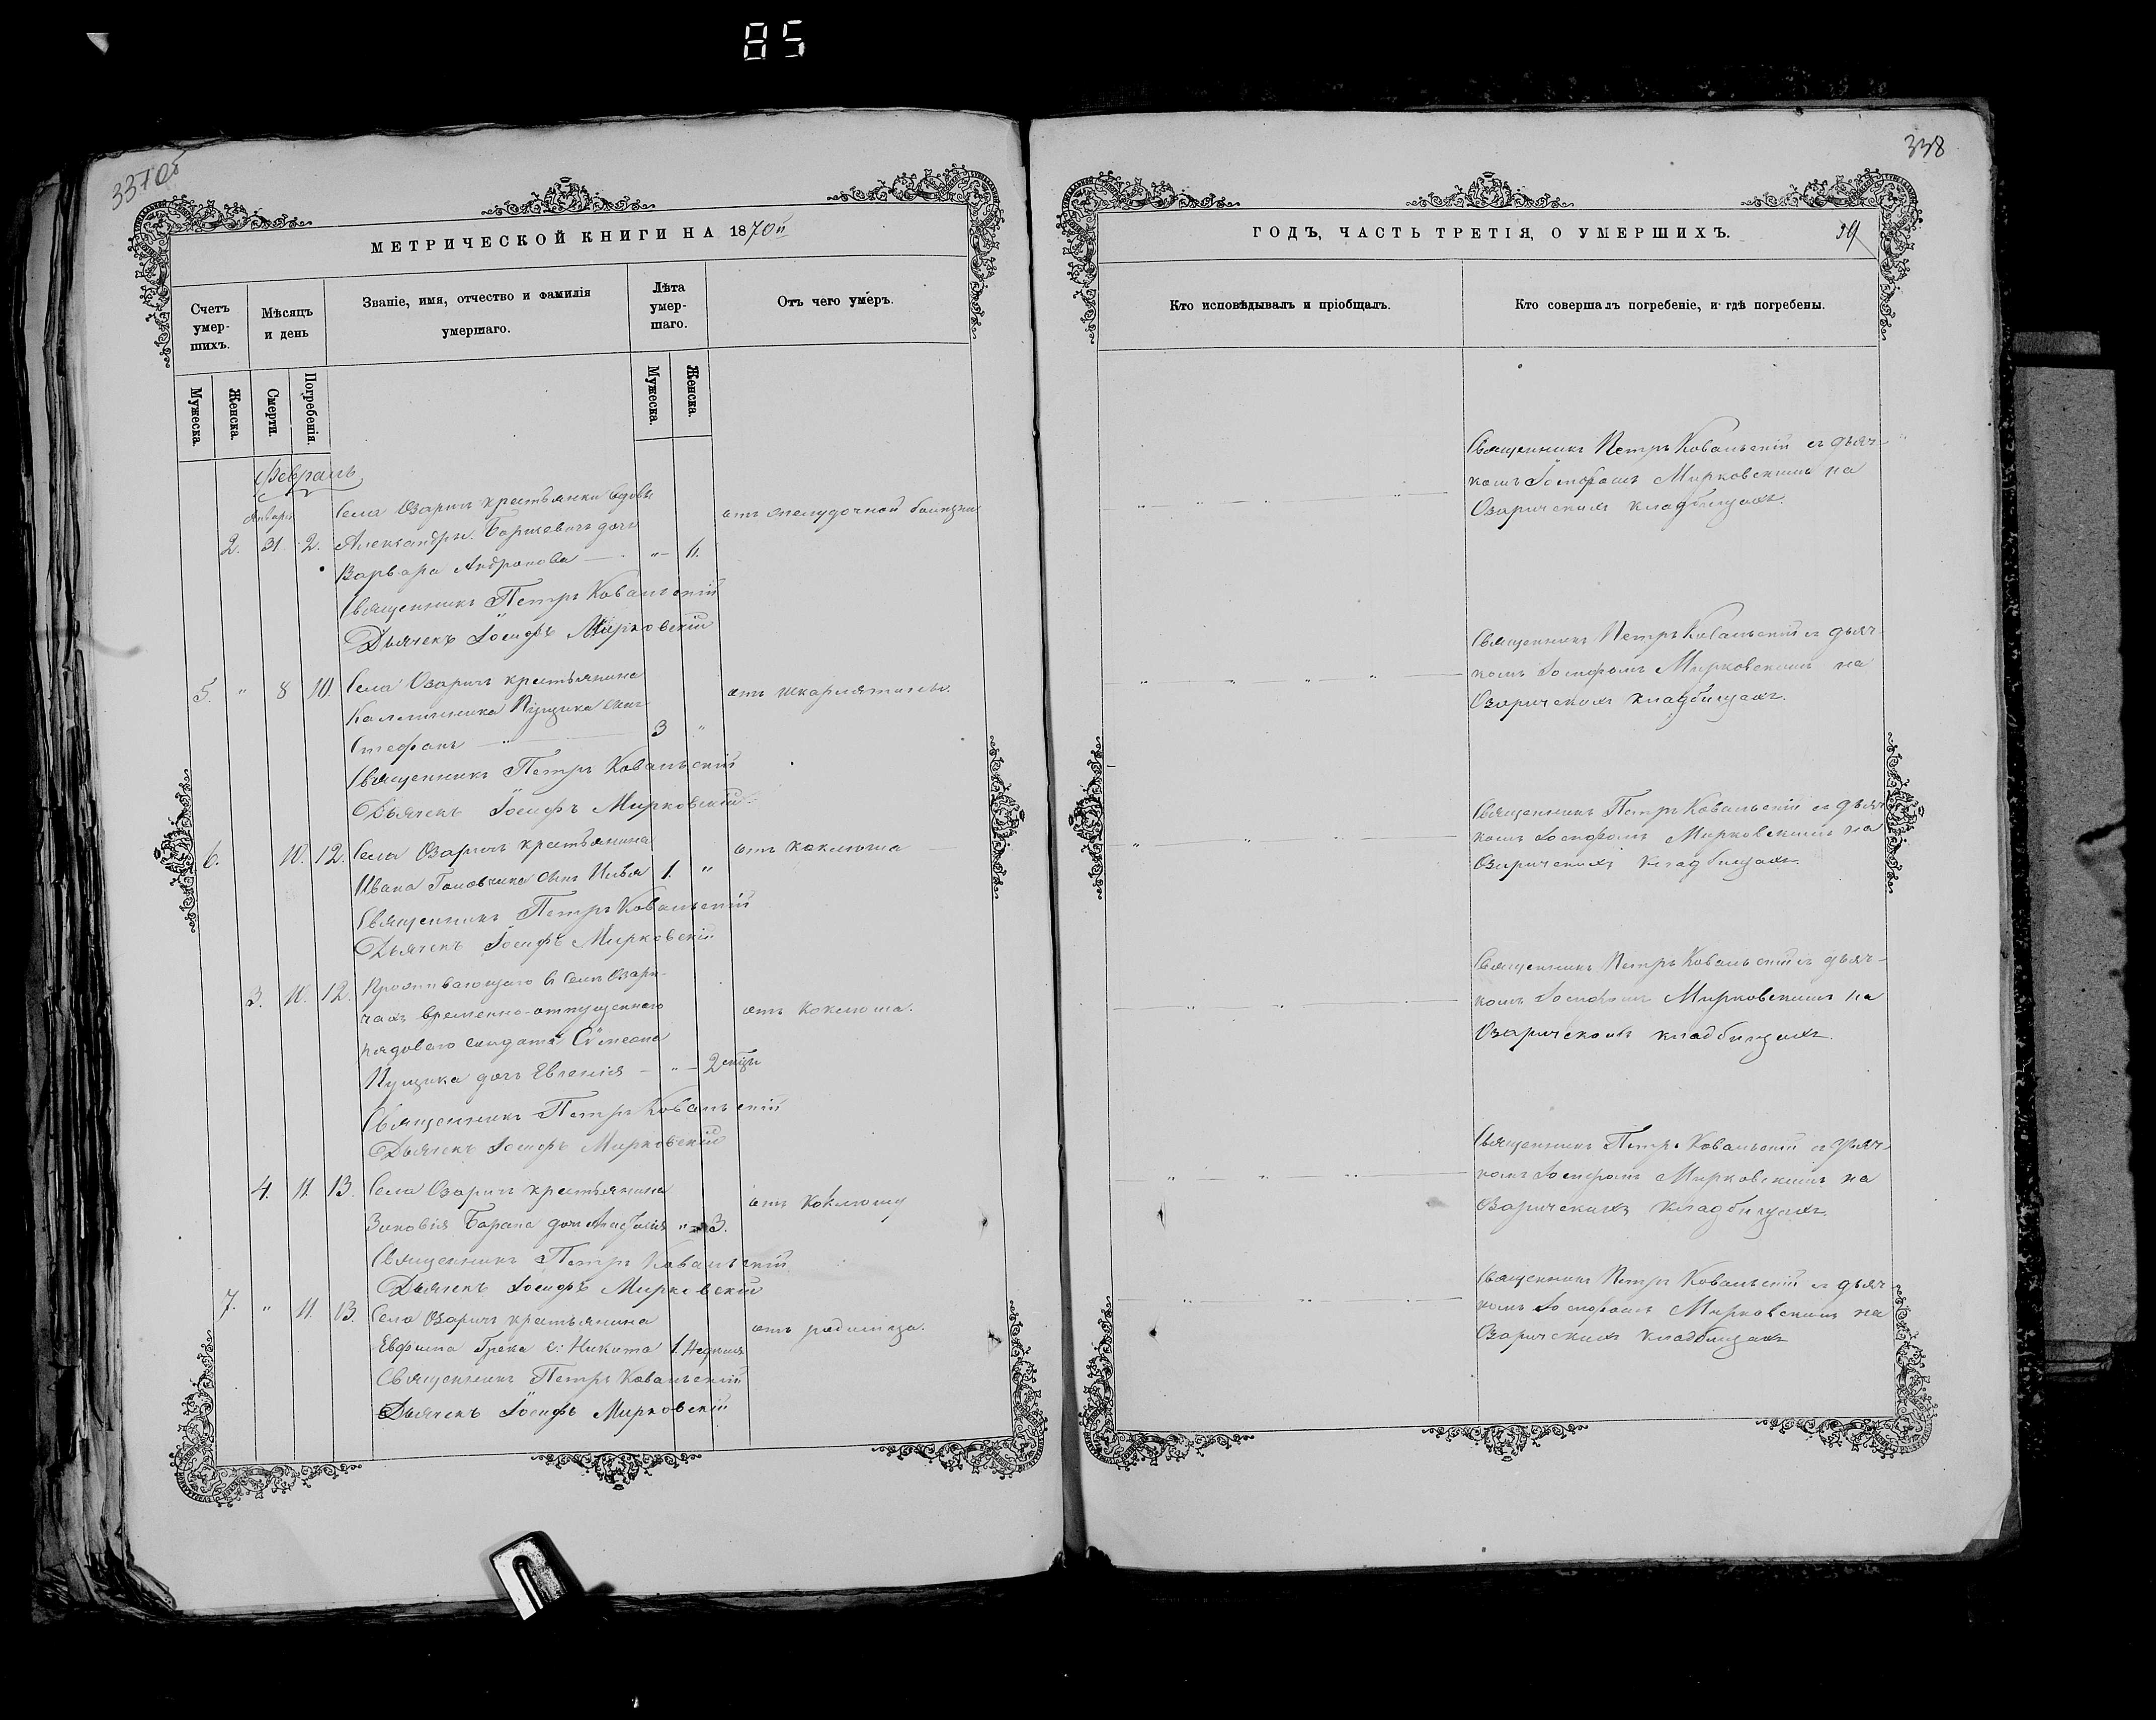 85
337об
МЕТРИЧЕСКОЙ КНИГИ НА 1870й
Счетъ умер-шихъ.
Мѣсяцъ и день
Званіе, имя, отчество и фамилія умершаго.
Лѣта умер-шаго.
Отъ чего умеръ.
Мужеска.
Женска.
Смерти.
Погребенія.
Мужеска.
Женска.
Февраль
Января
2. 31. 2.
Села Озаричъ крестьянки вдовы
Александры дочь
Варвара Андронова — " — 11.
отъ желудочной болезни
Священникъ Петръ Ковальскій
Дьячекъ Іосифъ Мирковскій
5. " 8 10. Села Озаричъ крестьянина
Пущика сынъ
Стефанъ — " — 3 "
отъ шкарлятины.
Священникъ Петръ Ковальскій
Дьячекъ Іосифъ Мирковскій
6. 10. 12. Села Озаричъ крестьянина
Ивана Головчика сынъ Илья 1. "
отъ коклюша
Священникъ Петръ Ковальскій
Дьячекъ Іосифъ Мирковскій
3. 10. 12. Проживающаго в селѣ Озари-
чахъ временно-отпущеннаго
рядоваго солдата Сімеона
Пущика дочь Евгенія — " — 2
отъ коклюша.
Священникъ Петръ Ковальскій
Дьячекъ Іосифъ Мирковскій
4. 11. 13. Села Озаричъ крестьянина
Зиновія Барана дочь " 3.
отъ коклюшу
Священникъ Петръ Ковальскій
Дьячекъ Іосифъ Мирковскій
7. " 11. 13. Села Озаричъ крестьянина
Евфима Грека с: Никита 1. Недѣля
отъ родимца.
Священникъ Петръ Ковальскій
Дьячекъ Іосифъ Мирковскій
338
ГОДЪ, ЧАСТЬ ТРЕТІЯ, О УМЕРШИХЪ.
39
Кто исповѣдывалъ и пріобщалъ.
Кто совершалъ погребеніе, и гдѣ погребены.
Священникъ Петръ Ковальскій съ дьяч-
комъ Іосифомъ Мирковскимъ на
Озаричскихъ кладбищахъ.
Священникъ Петръ Ковальскій съ дьяч-
комъ Іосифомъ Мирковскимъ на
Озаричскихъ кладбищахъ.
Священникъ Петръ Ковальскій съ дьяч-
комъ Іосифомъ Мирковскимъ на
Озаричскихъ кладбищахъ.
Священникъ Петръ Ковальскій съ дьяч-
комъ Іосифомъ Мирковскимъ на
Озаричскомъ кладбищахъ.
Священникъ Петръ Ковальскій съ дьяч-
комъ Іосифомъ Мирковскимъ на
Озаричскихъ кладбищахъ.
Священникъ Петръ Ковальскій съ дьяч-
комъ Іосифомъ Мирковскимъ на
Озаричскихъ кладбищахъ